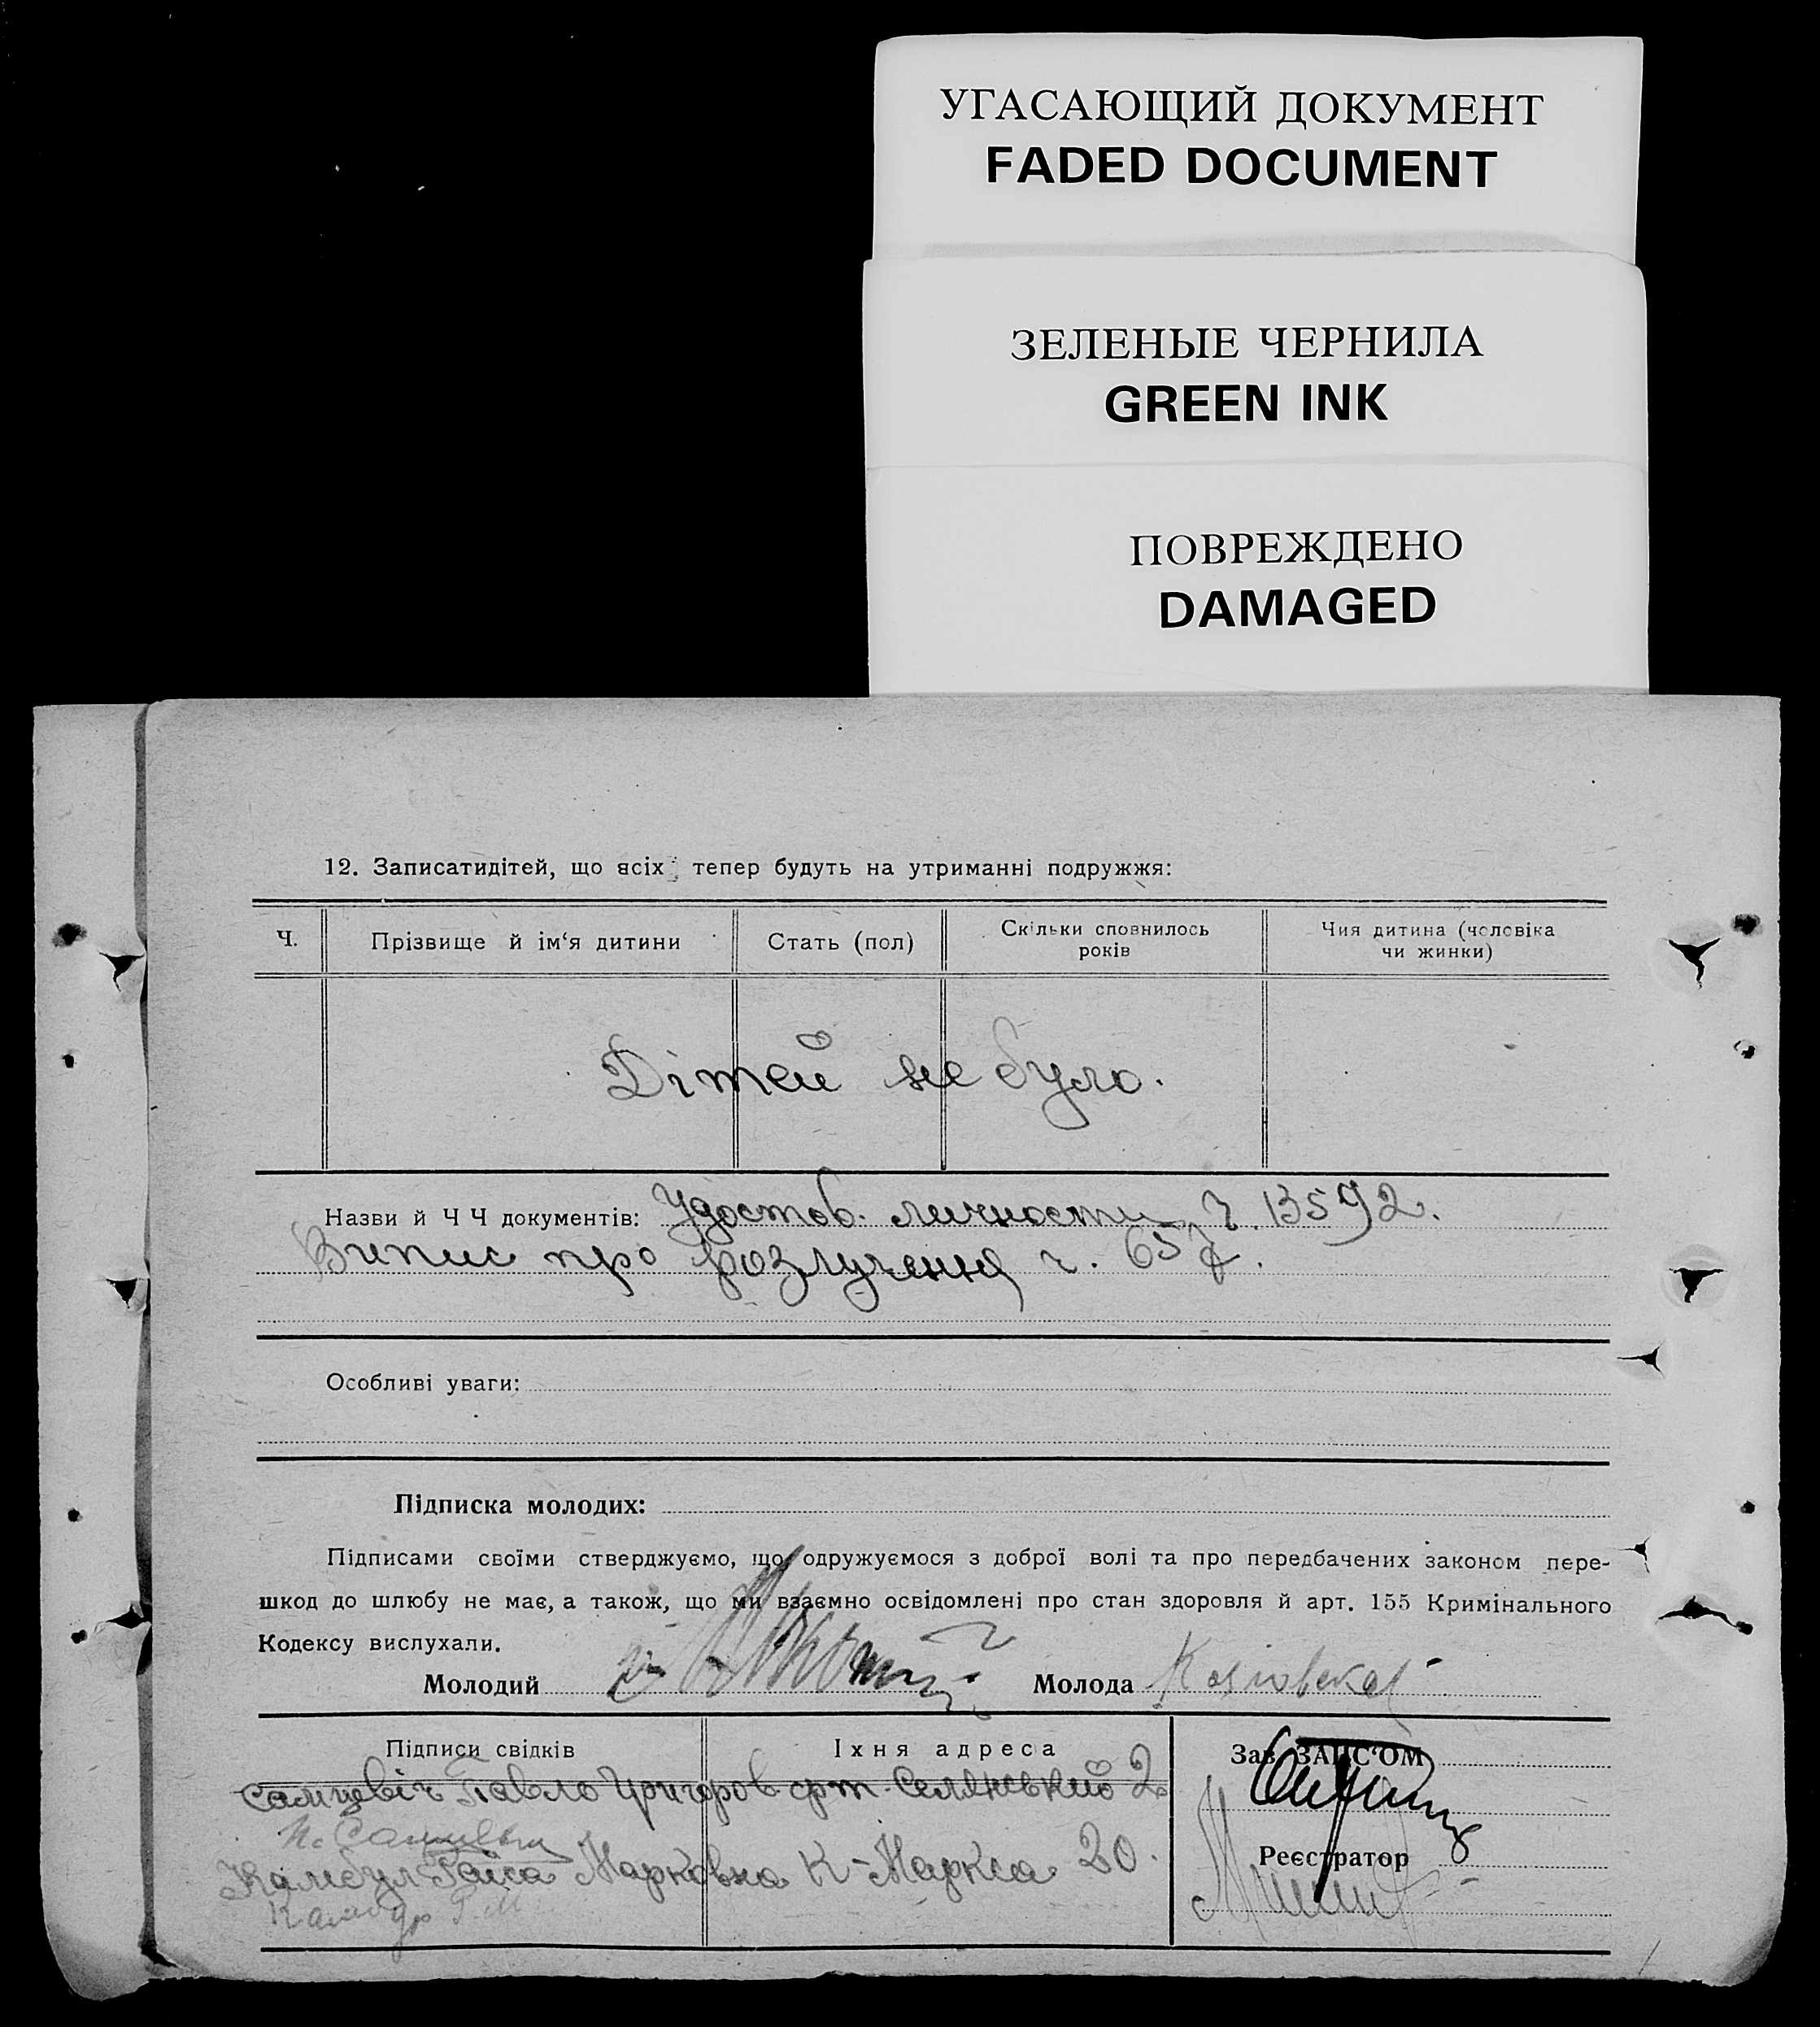 УГАСАЮЩИЙ ДОКУМЕНТ
FADED DOCUMENT
ЗЕЛЕНЫЕ ЧЕРНИЛА
GREEN INK
ПОВРЕЖДЕНО
DAMAGED
12. Записатидітей, що всіх тепер будуть на утриманні подружжя:
Ч. Прізвище й ім‘я дитини Стать (пол) Скільки сповнилось років Чия дитина (чоловіка чи жинки)
Дітей не було.
Назви й Ч Ч документів: Удостов. личности ч. 13592.
Випис про розлучення ч. 657.
Особливі уваги:
Підписка молодих:
Підписами своїми стверджуємо, що одружуємося з доброї волі та про передбачених законом пере-
шкод до шлюбу не має, а також, що ми взаємно освідомлені про стан здоровля й арт. 155 Кримінального
Кодексу вислухали.
Молодий Молода
Підписи свідків Іхня адреса Зав. ЗАПС‘ОМ
Павло Григоров 2
Реєстратор
Раїса Марковна К-Маркса 20.